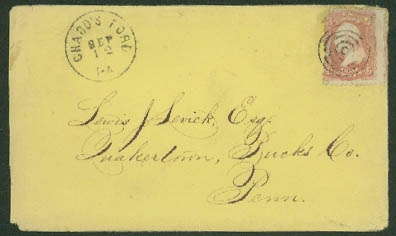 CHADD'S FORD
SEP
12
PA
Lewis J Levick, Esq.
Quakertown, Bucks Co.
Penn.